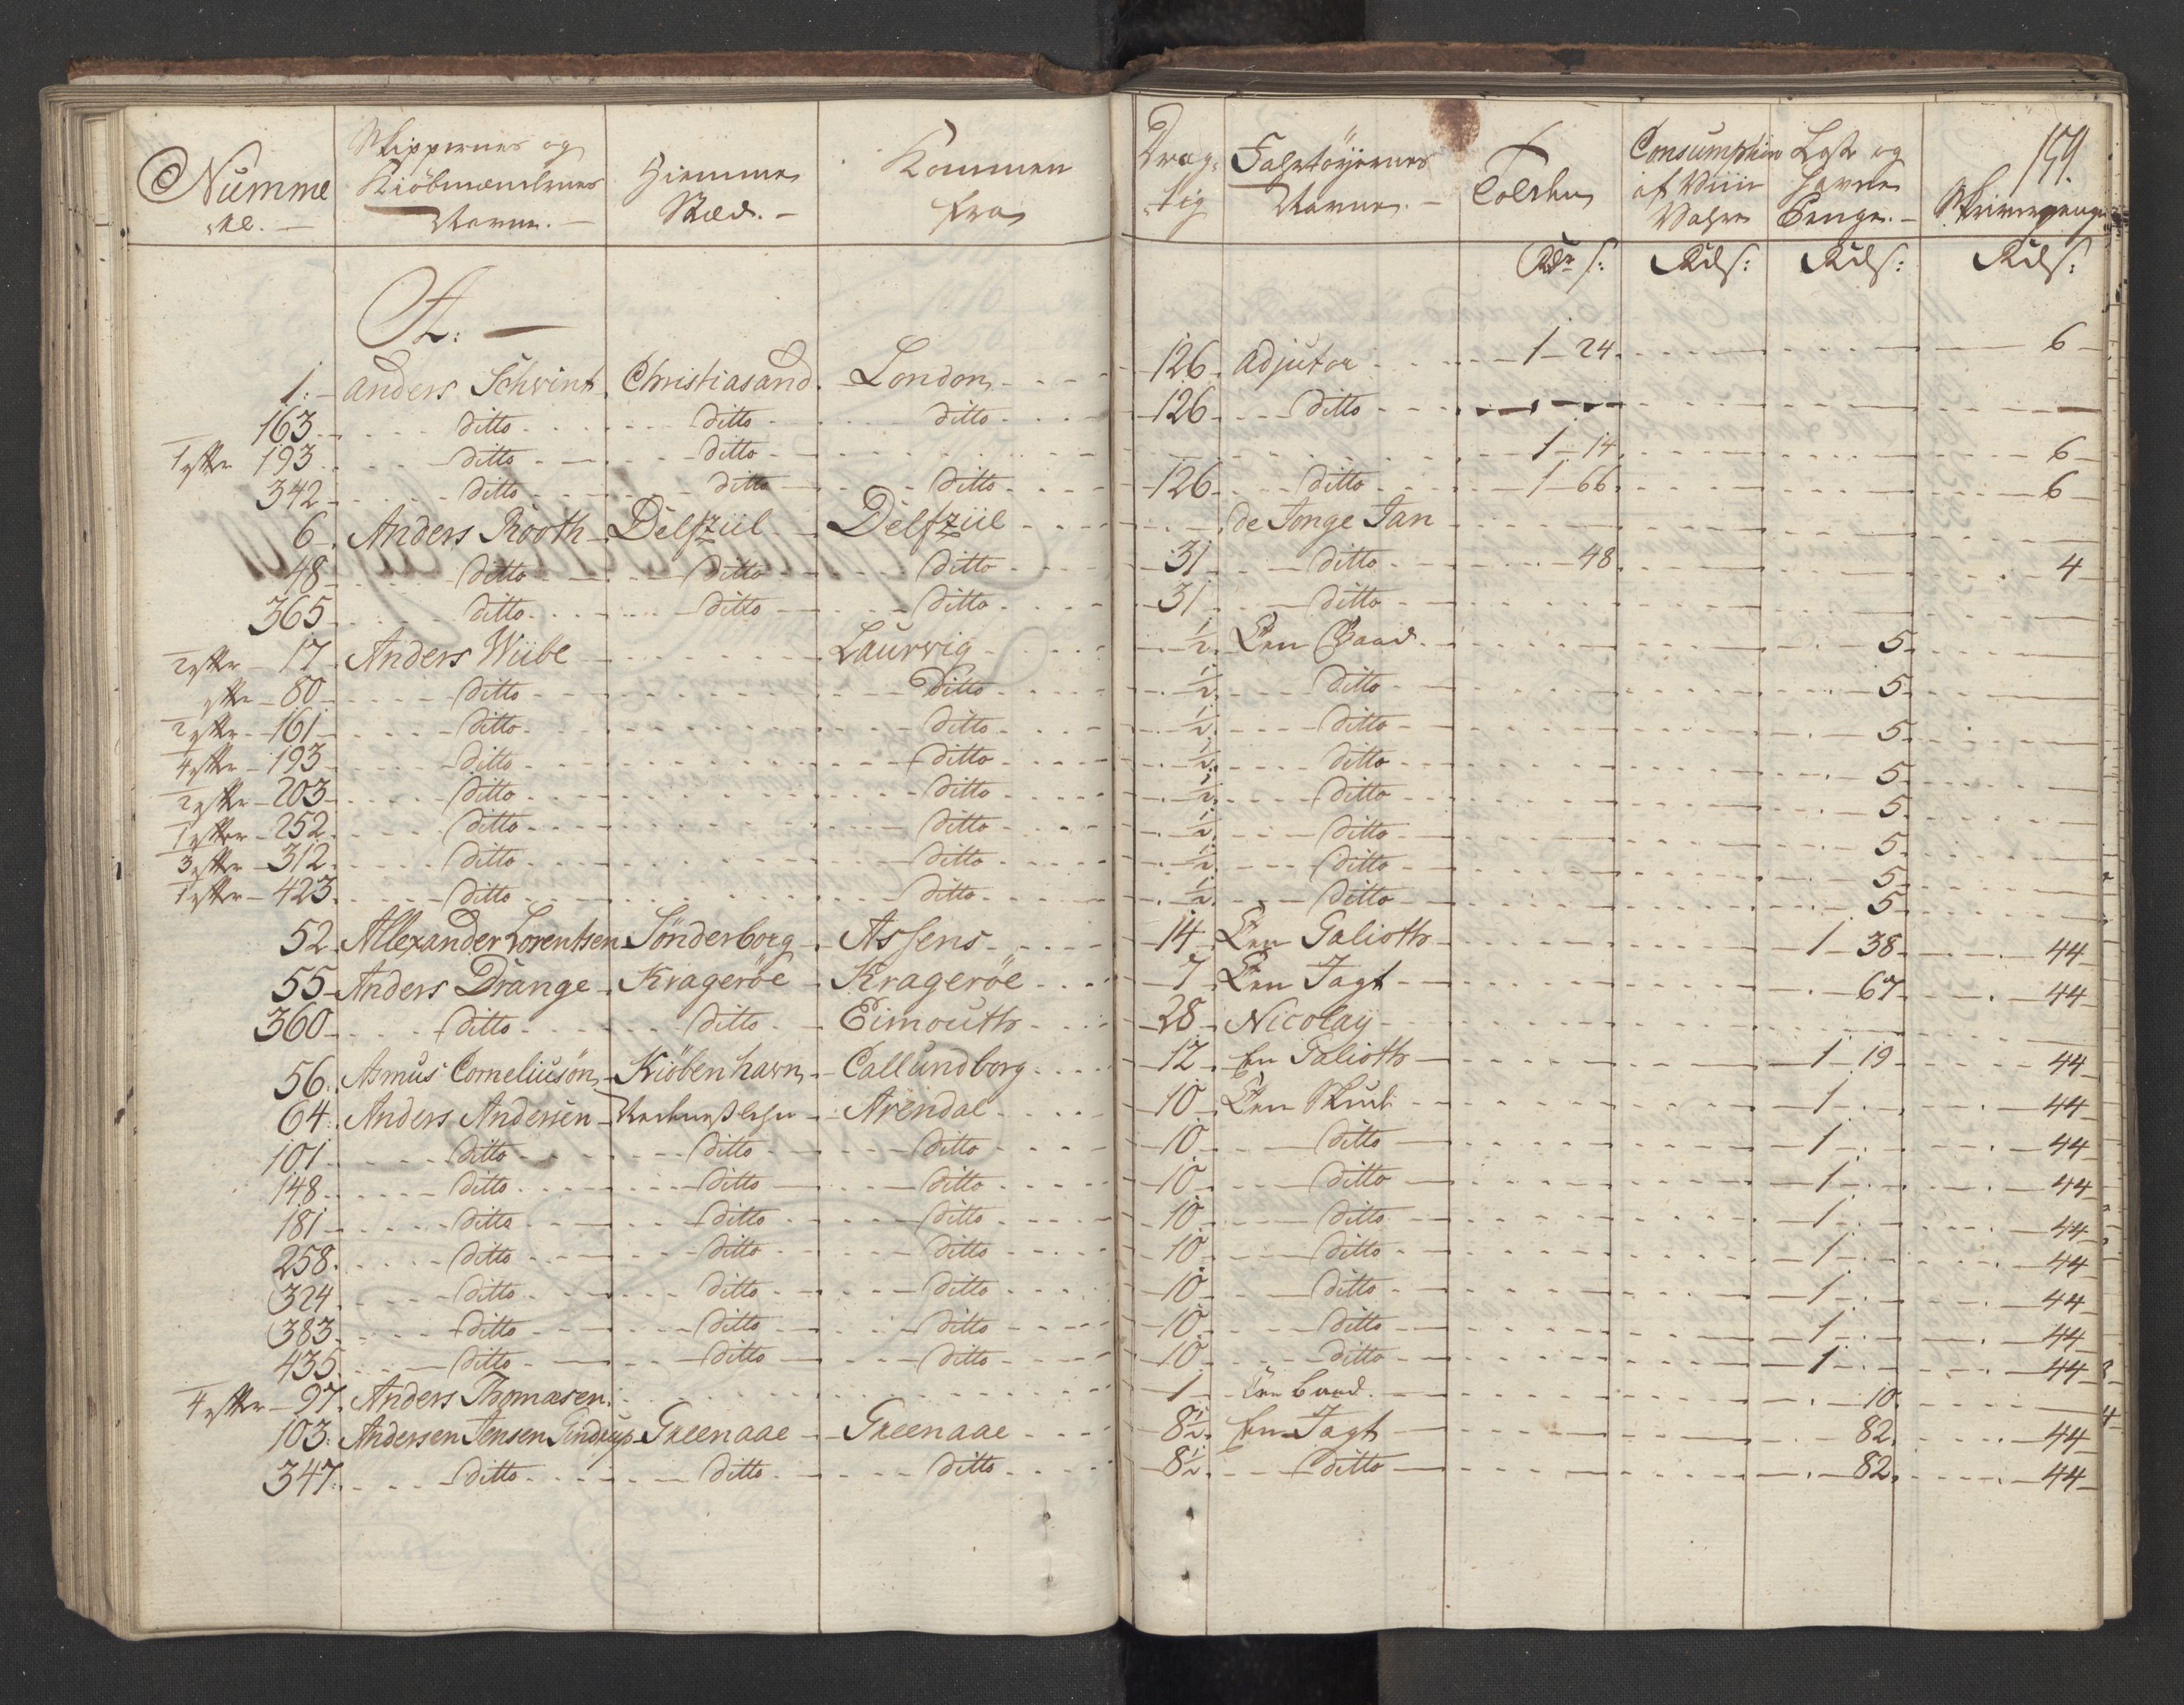 Numme Skippernes og Hiemme Kommen Drag- Fahrtöyernes Tolden Consumption Last og 159.
rne. Kiöbmændenes Stæd. fra tig Navne. af Viin Havne Skriverpenge
Navne. Vahre Penge.
Rdr s: Rds: Rds: Rds:
A:
1. Anders Schvint Christiasand London 126 Adjutor 1 24 6
163 ditto ditto ditto 126 ditto
1 193 ditto ditto 1 14 6
342 ditto ditto ditto 126 ditto 1 66 6
6 Anders Rooth Delfziil Delfziil de Jonge Jan
48 ditto ditto ditto 31 ditto 48 4
365 ditto ditto ditto 31 ditto
2 17 Anders Wiibe Laurvig ½ Een Baad 5
80 ditto ditto ½ ditto 5
2 161 ditto ditto ½ ditto 5
4 193 ditto ditto ½ ditto 5
2 203 ditto ditto ½ ditto 5
1 252 ditto ditto ½ ditto 5
3 312 ditto ditto ½ ditto 5
1 423 ditto ditto ½ ditto 5
52 Allexander Lorentsen Sönderborg Assens 14 Een Galioth 1 38 44
55 Anders Drange Krageröe Krageröe 7 Een Jagt 67 44
360 ditto ditto Eimouth 28 Nicolaij
56 Asmus Corneliusön Kiöbenhavn Callundborg 12 En Galioth 1 19 44
64 Anders Andersen Arendal 10 Een Skud 1 44
101 ditto ditto ditto 10 ditto 1 44
148 ditto ditto ditto 10 ditto 1 44
181 ditto ditto ditto 10 ditto 1 44
258 ditto ditto ditto 10 ditto 1 44
324 ditto ditto ditto 10 ditto 1 44
383 ditto ditto ditto 10 ditto 1 44
435 ditto ditto ditto 10 ditto 1 44
4 97 Anders Thomæsen 1 Een baad 10
103 Andersen Jensen Gindrup Greenaae Greenaae 8½ En Jagt 82 44
347 ditto ditto ditto 8½ ditto 82 44